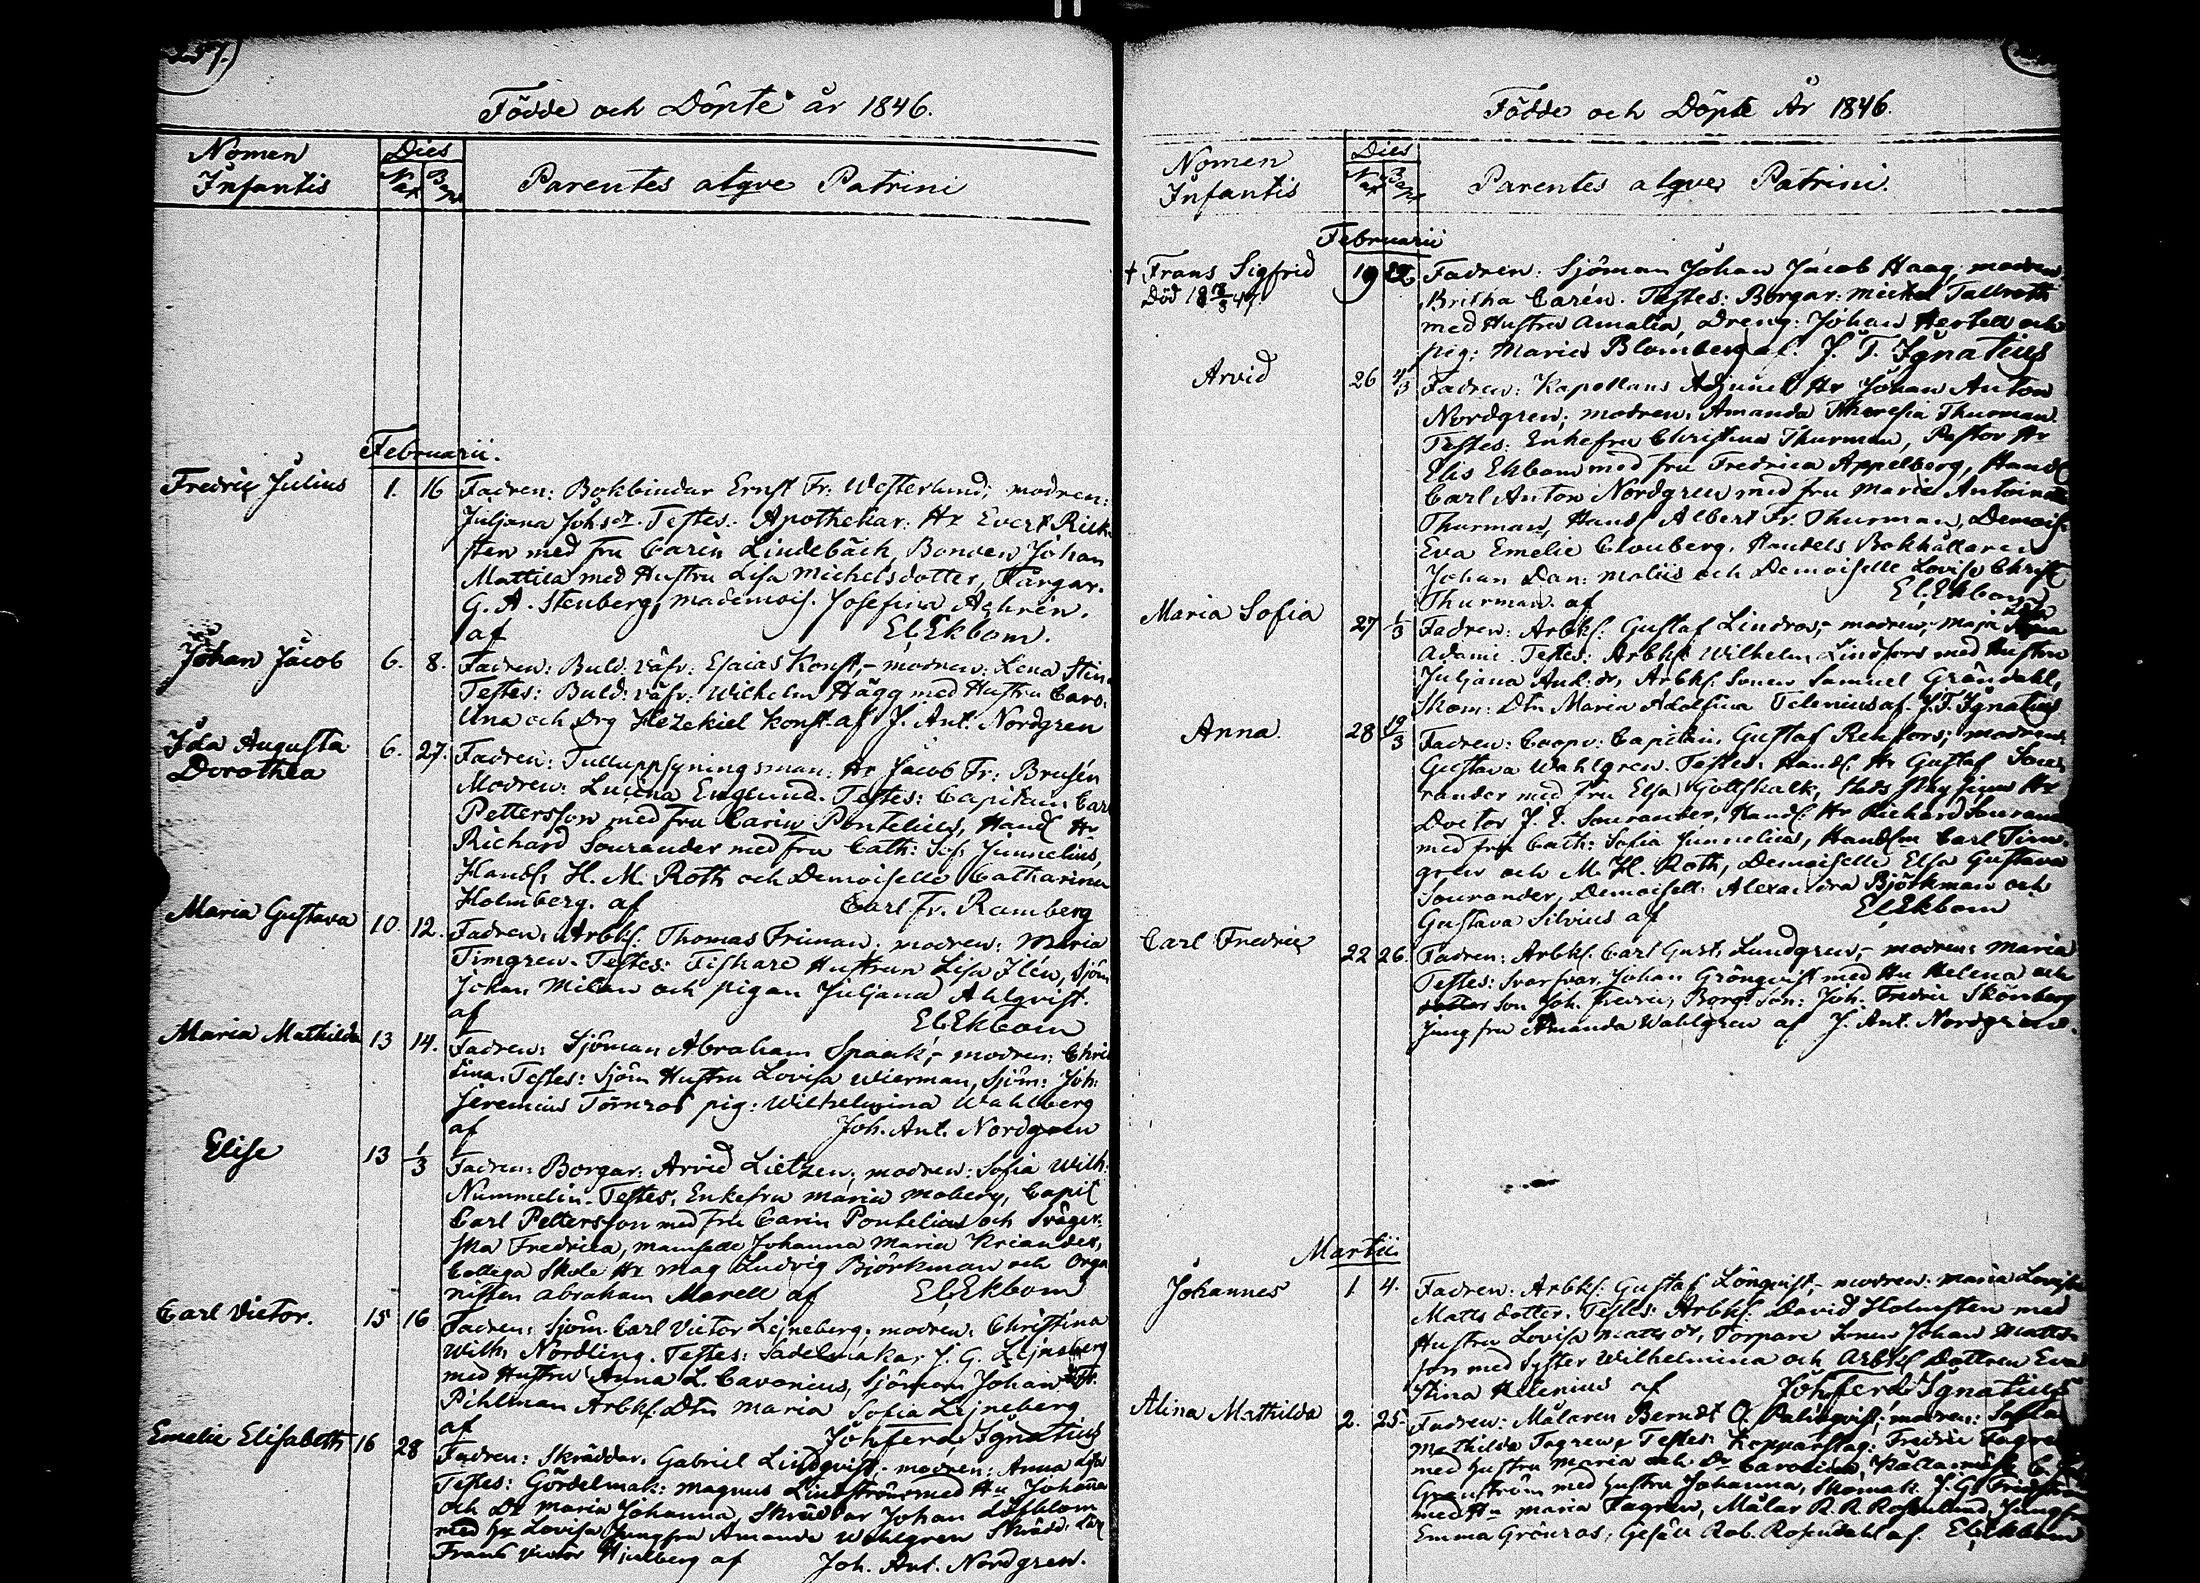 257.)
Födde och Döpte år 1846.
Nomen Infantis
Dies
Nat Bapt
Parentes atqve Patrini
Februarii.
Fredric Julius 1. 16 Fadren: Bokbindar Ernst Fr: Westerlund; modren:
Juljana Joh:sdr. Testes: Apothekar: Hr Evert Rick-
sten med fru Carin Lindebäck, Bonden Johan
Mattila med Hustru Lisa Michelsdotter, Färgar.
G. A. Stenberg, mademois. Josefina Åghrén.
af El. Ekbom.
Johan Jacob 6. 8. Fadren: Buld. väfv: Esaias Konst,- modren: Lena Stina
Testes: Buld: väfv: Wilhelm Hägg med Hustru Caro-
lina och Drg Hezekiel Konst. af J. Ant. Nordgren
Ida Augusta
Dorothea 6. 27. Fadren: Tulluppsyningsman: Hr Jacob Fr: Brusén
Modren: Lucina Englund. Testes: Capitain Carl
Pettersson med fru Carin Pontelius, Handl Hr
Richard Sourander med fru Cath: Sof. Junnelius,
Handl. H. M. Roth och Demoiselle Catharina
Holmberg. af Carl Fr. Ramberg
Maria Gustava 10. 12. Fadren: Arbk. Thomas Friman. modren: Maria
Timgren. Testes: Fiskare Hustrun Lisa Ilén, Sjöm
Johan Milan och pigan Juljana Ahlqvist.
af El. Ekbom
Maria Mathilda 13 14. Fadren: Sjöman Abraham Spaak,- modren: Chris
tina. Testes: Sjöm Hustru Lovisa Wierman, Sjöm: Joh:
Jeremias Törnros pig: Wilhelmina Wahlberg
af Joh. Ant. Nordgren
Elise 13 1/3 Fadren: Borgar: Arvid Lietzen; modren: Sofia Wilh:
Nummelin. Testes, Enkefru Maria Moberg, Capit
Carl Pettersson med fru Carin Pontelius och Sväger-
ska Fredrica, mamselle Johanna Maria Kriander,
Collega Skole Hr Mag Ludvig Björkman och Orga
nisten Abraham Morell af El. Ekbom
Carl Victor. 15 16 Fadren: Sjöm. Carl Victor Lejneberg. modren: Christina
Wilh: Nordling. Testes: Sadelmakar J. G. Lejneberg
med Hustru Anna L. Cavonius, Sjöman Johan Fr.
Pihlman Arbk: Dtn Maria Sofia Lejneberg
af Joh ferd. Ignatius
Emelie Elisabeth 16 28 Fadren: Skräddar. Gabriel Lindqvist,- modren: Anna
Testes: Gördelmak: Magnus Lindström med Hu Johanna
och Dr Maria Johanna, Skräddar Johan Löfblom
med Lovisa Jungfru Amanda Wahlgren Skrädd.
Frans Victor Hjulberg af Joh. Ant. Nordgren.
Födde och Döpte År 1846.
Nomen Infantis
Dies
Nat Bapt
Parentes atqve Patrini.
Februarii
+ Frans Sigfrid 19 22 Fadren: Sjöman Johan Jacob Haag. modren:
Död Britha Carén. Testes: Borgar: Michel Tallroth
med Hustru Amalia, Dreng: Johan Hertell och
pig: Maria Blomberg af. J. F. Ignatius
Arvid 26 4/3 Fadren: Kapellans Adjunct Hr Johan Anton
Nordgren; modren: Amanda Theresia Thurman.
Testes: Enkefru Christina Thurman, Pastor Hr
Elis Ekbom med fru Fredrica Appelberg, Handl
Carl Anton Nordgren med fru Maria Antoinette
Thurman, Handl Albert Fr. Thurman, Demois.
Eva Emelie Clouberg, Handels Bokhållaren
Johan Dan: Malins och Demoiselle Lovisa Christ
Thurman. af El. Ekbom
Maria Sofia 27 1/3 Fadren: Arbk: Gustaf Lindros,- modren,- Maja Lisa
Adami. Testes: Arbk: Wilhelm Lindfors med Hustru
Juljana And:dr, Arbk: Sonen Samuel Gröndahl,
Skom: Dtn Maria Adolfina Telenius af. J. F. Ignatius
Anna. 28 19/3 Fadren: Coopv: Capitain, Gustaf Renfors; modren:
Gustava Wahlgren. Testes: Handl. Hr Gustaf Sou-
rander med fru Elsa Gottskalk, Stads Physicus Hr
Doctor J. E. Sourander, Handl. Hr Richard Sourander
med fru Cath: Sofia Junnelius, Handl Carl Tim-
gren och M. H. Roth, Demoiselle Elsa Gustava
Sourander, Demoiselle Alexandra Björkman och
Gustava Silvius af El. Ekbom
Carl Fredric 22 26. Fadren: Arbk. Carl Gust. Lundgren,- modren: Maria
Testes: Svarfvar Johan Grönqvist med Hu Helena och
son Joh. Fredric, Borg: Son: Joh. Fredric Skönberg
Jungfru Amanda Wahlgren af J. Ant. Nordgren.
Martii.
Johannes 1. 4. Fadren: Arbk: Gustaf Lönqvist,- modren: Maria Lovisa
Matts dotter. Testes: Arbk: David Holmsten med
Hustru Lovisa Matts dr, Torpare Sonen Johan Matts-
son med Syster Wilhelmina och Arbk Dottren Eva
Stina Helenius af Joh ferd Ignatius
Alina Mathilda 2. 25. Fadren: Målaren Berndt O. Palmqvist; modren: Sofia
Mathilda Fagren, Testes: Kopparslag: Fredric Fagren
med hustru Maria och Dr Carolina,
Granström med hustru Johanna, Skomak. J. G.
med Hu Maria Fagren, Målar R. R. Rosenlund, Jungf
Emma Grönros, Gesäll Rob. Rosendahl af. El. Ekbom